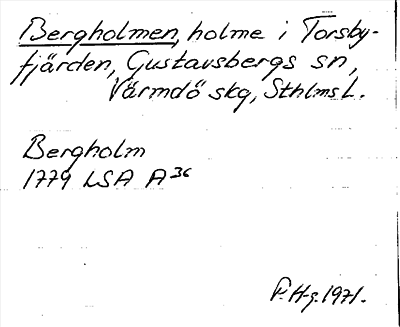 Bergholmen, holme i Torsby-
fjärden, Gustavsbergs sn,
Värmdö skg, Sthlms L.
Bergholm
1779 LSA A36
P. H-g. 1971.